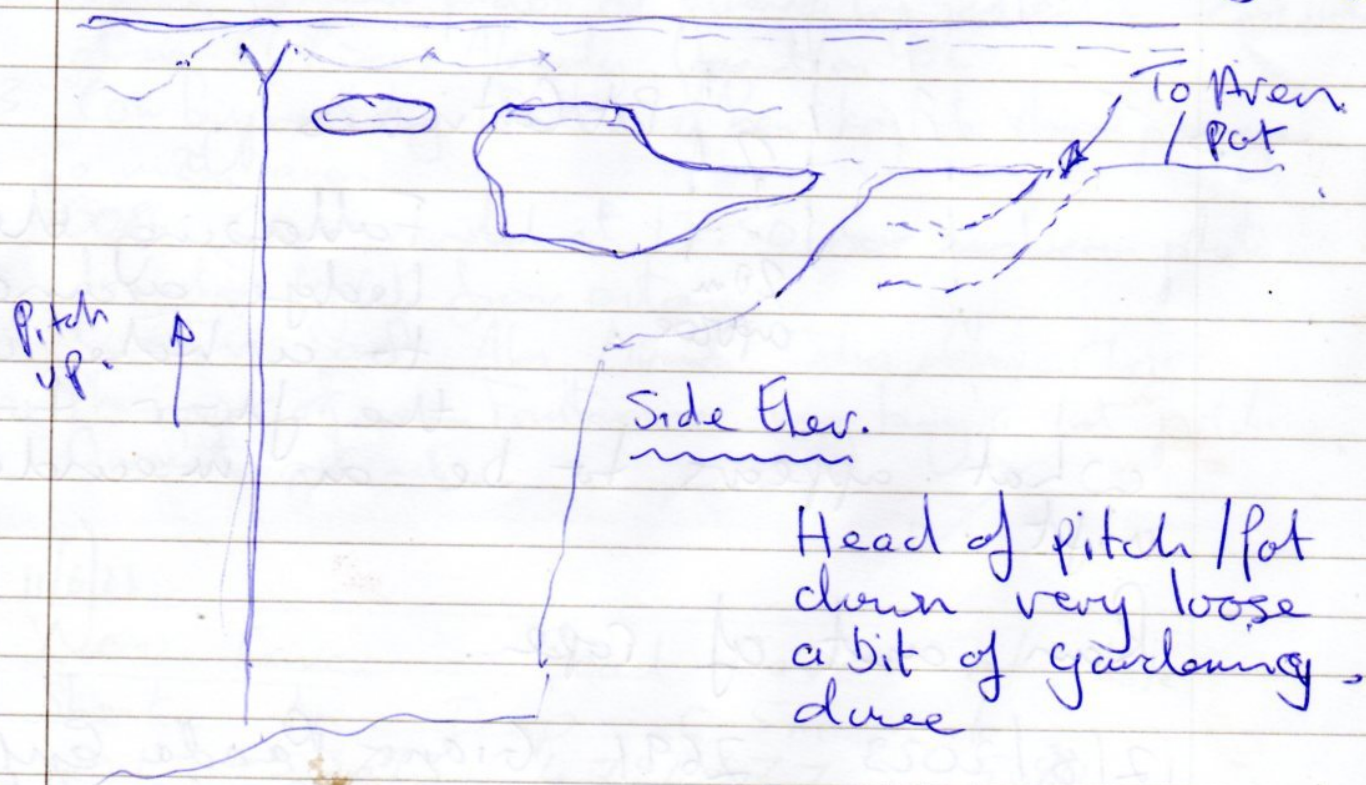 To Aven
Pot
Pitch
up.
Side Elev.
Head of pitch / Pot
down very loose
a bit of gardening.
done